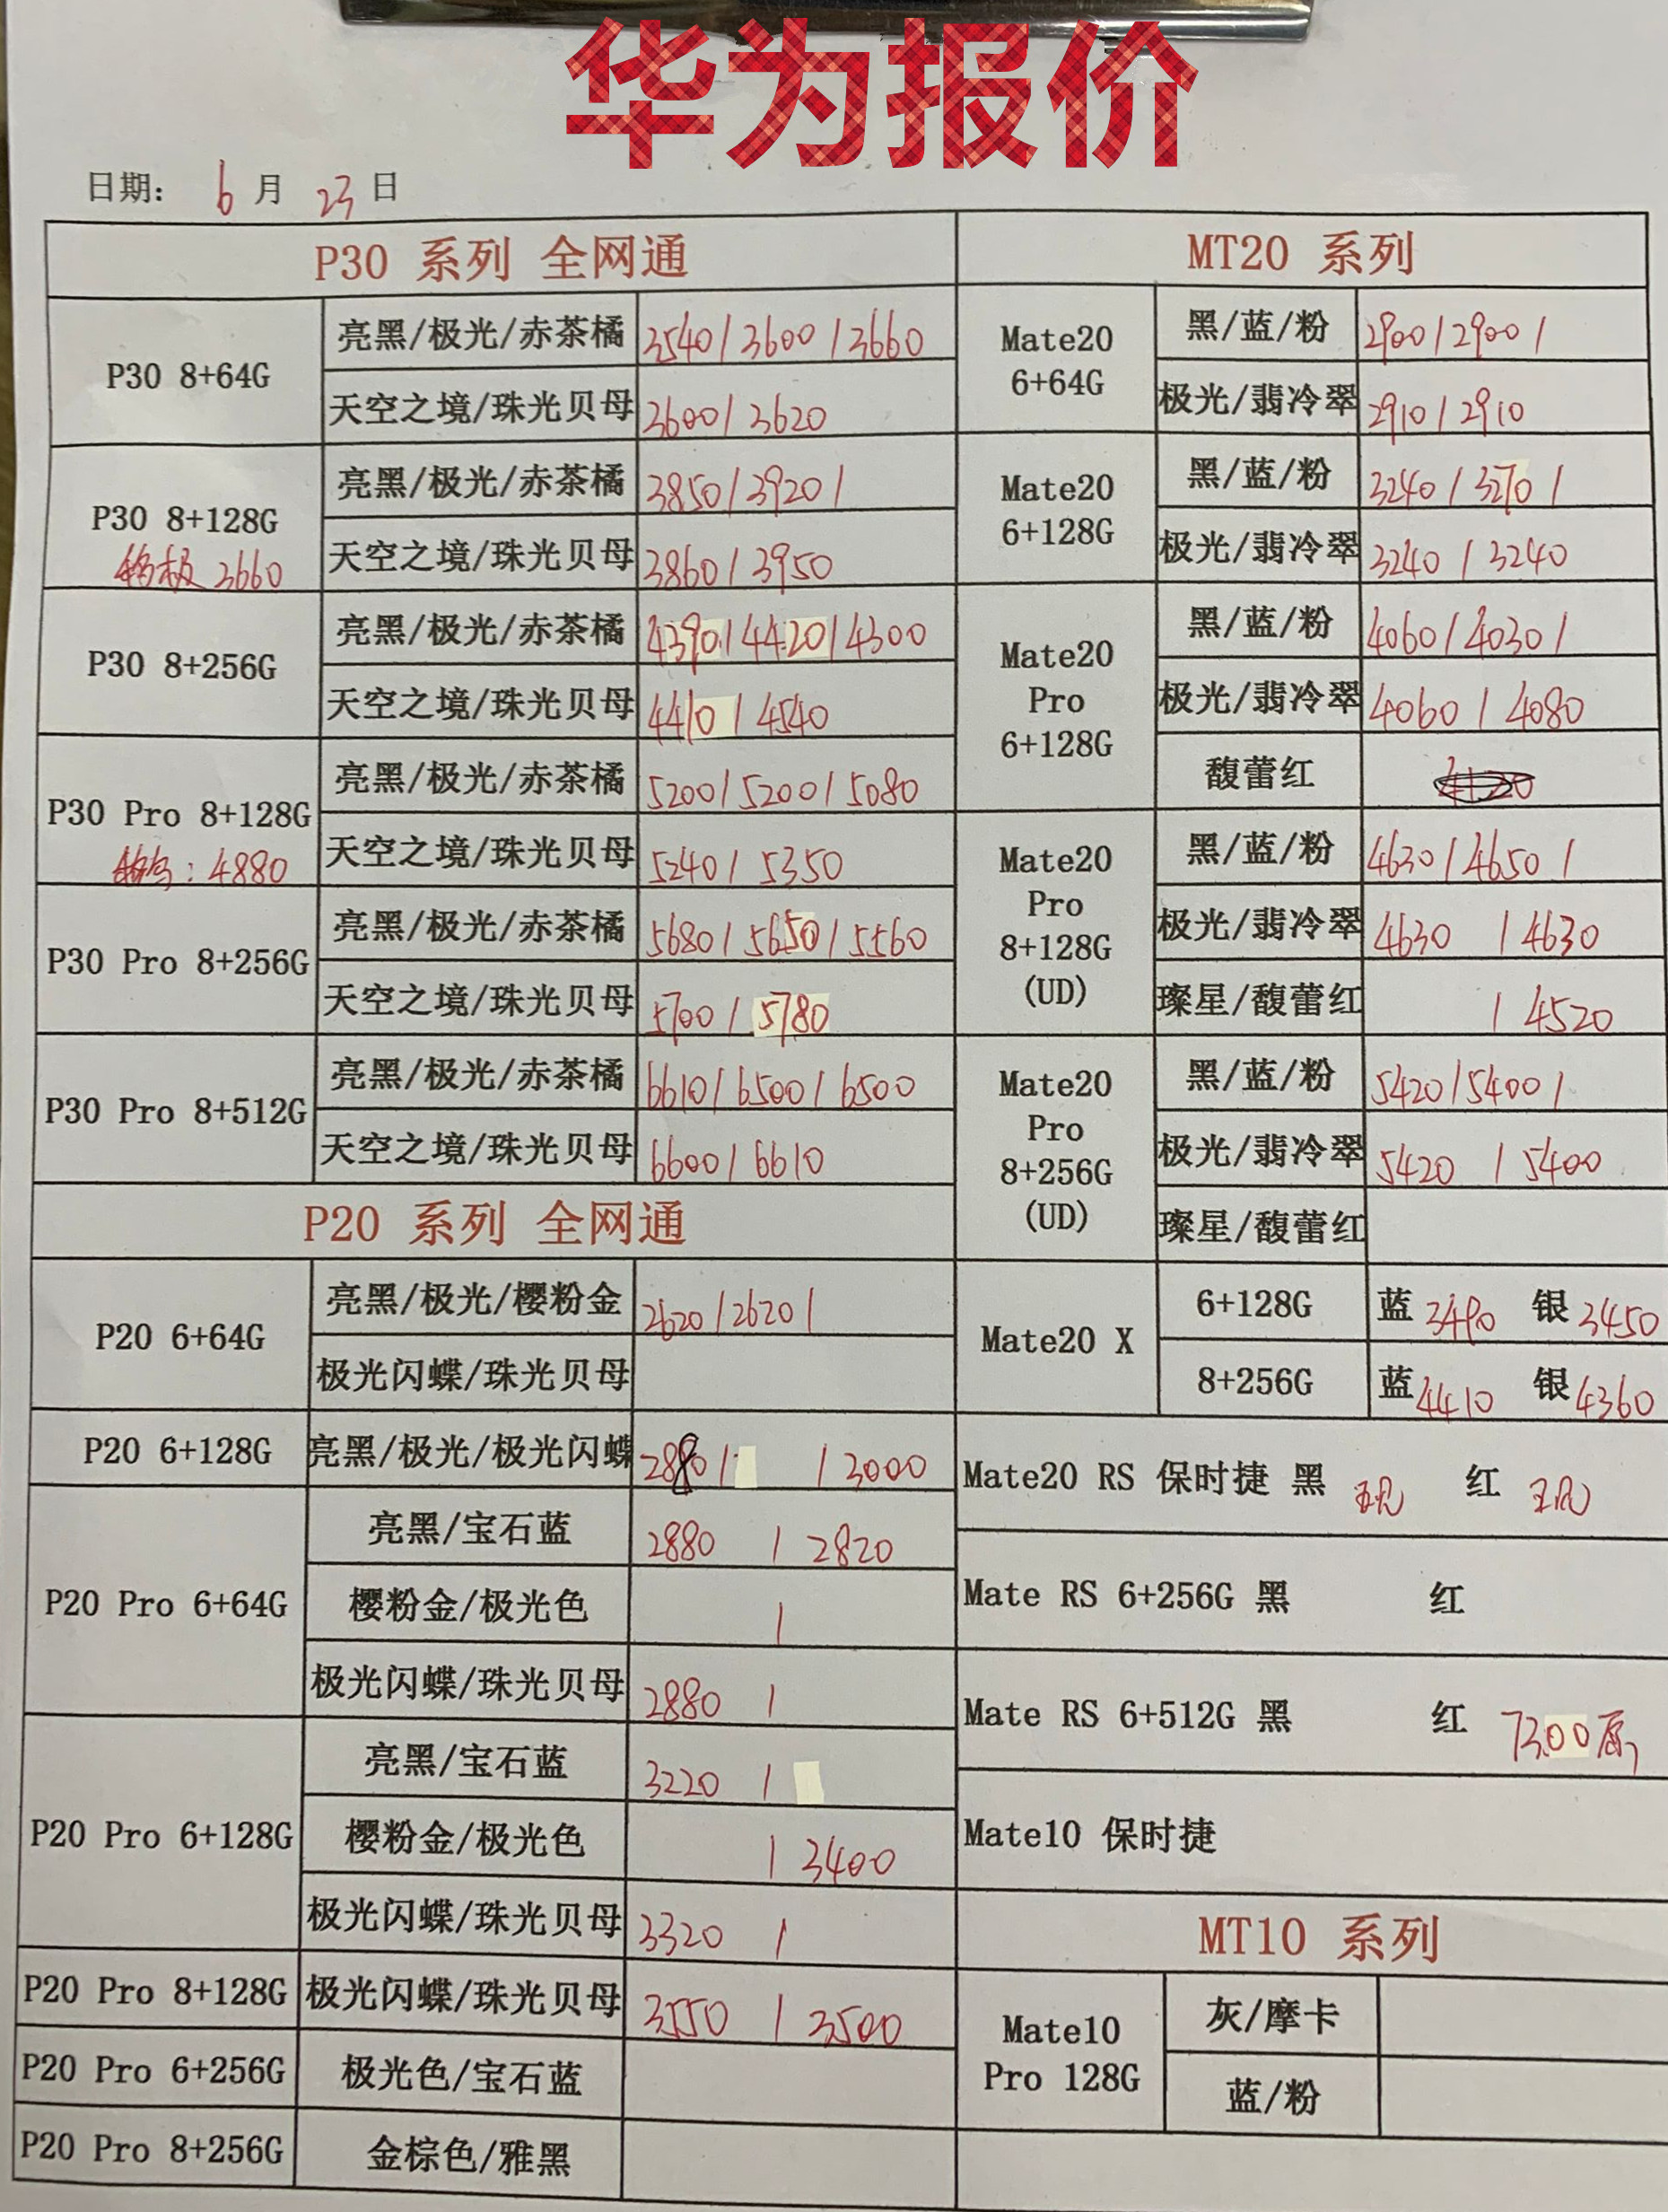 华为报价
日期: 6 月 23 日
P30 系列 全网通
P30 8+64G
亮黑/极光/赤茶橘 3540/3600/3660
天空之境/珠光贝母 3600/3620
P30 8+128G
极 3660
亮黑/极光/赤茶橘 3850/3920/
天空之境/珠光贝母 3860/3950
P30 8+256G
亮黑/极光/赤茶橘 4390/4420/4300
天空之境/珠光贝母 4410/4540
P30 Pro 8+128G
: 4880
亮黑/极光/赤茶橘 5200/5200/5080
天空之境/珠光贝母 5240/5350
P30 Pro 8+256G
亮黑/极光/赤茶橘 5680/5650/5560
天空之境/珠光贝母 5700/5780
P30 Pro 8+512G
亮黑/极光/赤茶橘 6610/6500/6500
天空之境/珠光贝母 6600/6610
P20 系列 全网通
P20 6+64G
亮黑/极光/樱粉金 2620/2620/
极光闪蝶/珠光贝母
P20 6+128G
亮黑/极光/极光闪蝶 2880/ /3000
P20 Pro 6+64G
亮黑/宝石蓝 2880 / 2820
樱粉金/极光色 /
极光闪蝶/珠光贝母 2880 /
P20 Pro 6+128G
亮黑/宝石蓝 3220 /
樱粉金/极光色 / 3400
极光闪蝶/珠光贝母 3320 /
P20 Pro 8+128G
极光闪蝶/珠光贝母 3550 / 3500
P20 Pro 6+256G
极光色/宝石蓝
P20 Pro 8+256G
金棕色/雅黑
MT20 系列
Mate20
6+64G
黑/蓝/粉 2900/2900/
极光/翡冷翠 2910/2910
Mate20
6+128G
黑/蓝/粉 3240/3270/
极光/翡冷翠 3240/3240
Mate20
Pro
6+128G
黑/蓝/粉 4060/4030/
极光/翡冷翠 4060/4080
馥蕾红
Mate20
Pro
8+128G
(UD)
黑/蓝/粉 4630/4650/
极光/翡冷翠 4630 /4630
璨星/馥蕾红 / 4520
Mate20
Pro
8+256G
(UD)
黑/蓝/粉 5420/5400/
极光/翡冷翠 5420 / 5400
璨星/馥蕾红
Mate20 X
6+128G 蓝 3490 银 3450
8+256G 蓝 4410 银 4360
Mate20 RS 保时捷 黑 现 红 现
Mate RS 6+256G 黑 红
Mate RS 6+512G 黑 红 7300
Mate10 保时捷
MT10 系列
Mate10
Pro 128G
灰/摩卡
蓝/粉